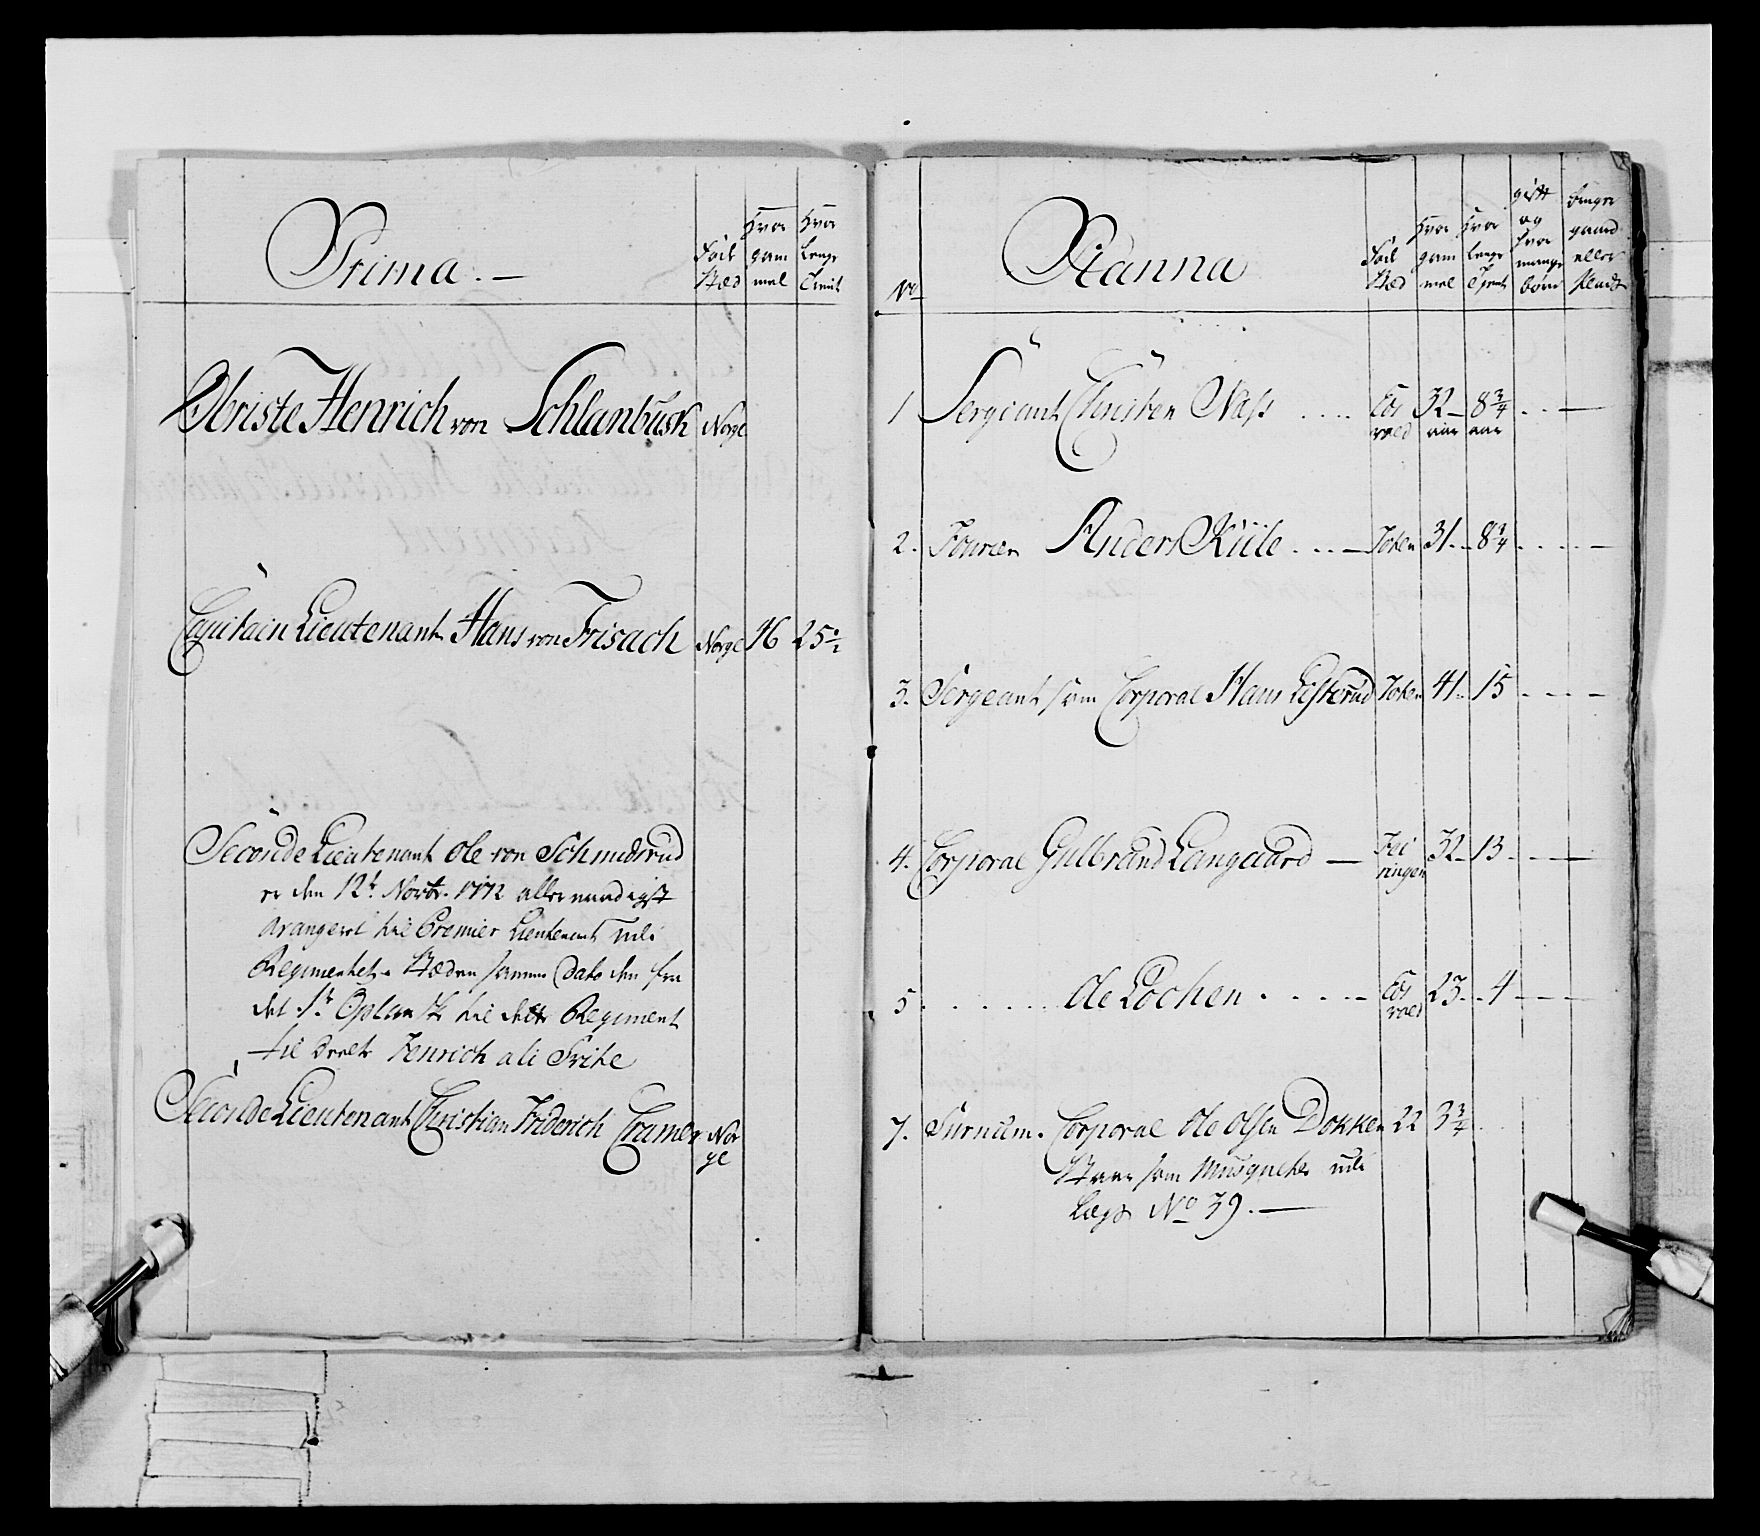 Prima. —
Föd
Stæd
Hvor
gam
mel
Hvor
Lenge
Tient
Obriste Henrich von Schlanbusk Norge
Capitain Lieutenant Hans von Frisach Norge 46 25½
Seconde Lieutenant Ole von Schmidsrud
er den 12t Novbr. 1772 allernaadigst
Arangeret til Premier Lieutenant udi
Regimentet. Steden samme Dato den fra
det 1t Oplandsk til dette Regiment
Henrich
Seconde Lieutenant Christian Friderich Cramer Nor
ge
No
Stanna
Föd
Stæd
Hvor
gam
mel
Hvor
Lenge
Tjent
gift
og
hvor
mange
börn
bruger
gaard
eller
Plads
1 Sergiant Christen Nass .... Eds 32 – 8¾ . . —
vold aar aar
2. Fourer Anders Kiile . . . — Toten 31 . – 8¾ . . . . —
3. Sergeant som Corporal Hans Listerud Toten 41 – 15 . – . –
4. Corporal Gulbrand Langaard — Fei 32 – 13 . – . —
ringen
5 . . . . . . Ole Lochen . . . . – Eds 23 . . 4 . – . —
vold
7. Surnum. Corporal Ole Olsen Dokken 22 3¾ .
Staar som Musqueter udi
Lægd No 39. —